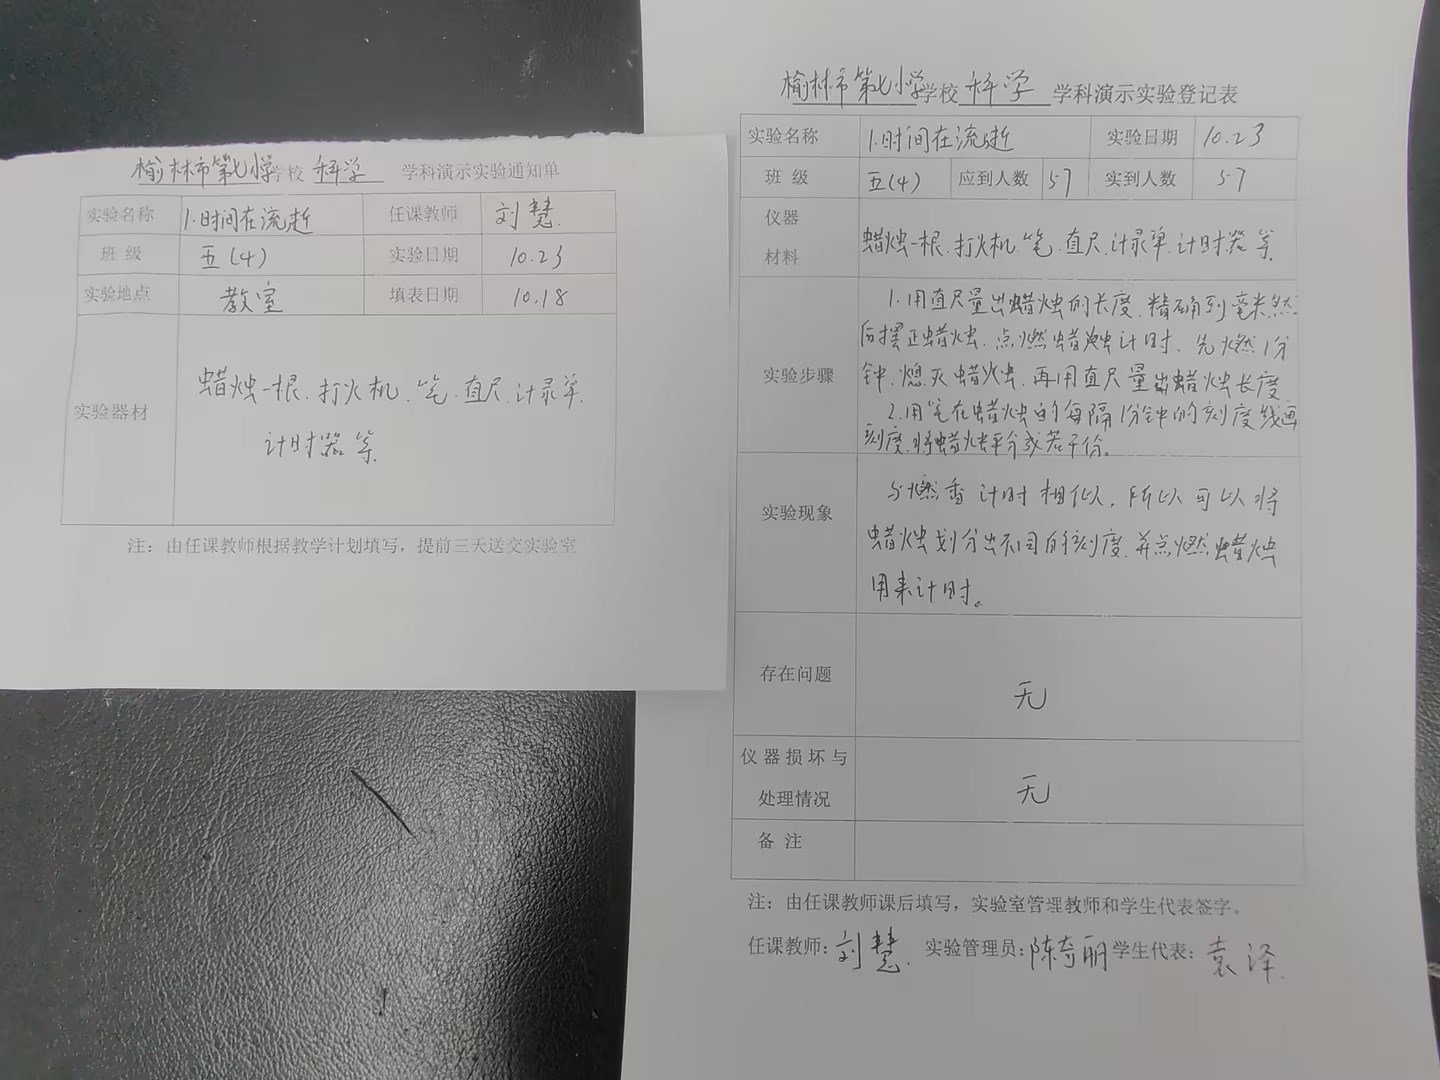 榆林市第七小学学校 科学 学科演示实验通知单
实验名称 1.时间在流逝 任课教师 刘慧
班 级 五(4) 实验日期 10.23
实验地点 教室 填表日期 10.18
实验器材 蜡烛一根.打火机.笔.直尺.计录单.
计时器等
注：由任课教师根据教学计划填写，提前三天送交实验室
榆林市第七小学学校 科学 学科演示实验登记表
实验名称 1.时间在流逝 实验日期 10.23
班 级 五(4) 应到人数 57 实到人数 57
仪器
材料
蜡烛一根.打火机.笔.直尺.计录单.计时器等
实验步骤
1.用直尺量出蜡烛的长度.精确到毫米.然
后摆正蜡烛.点燃蜡烛计时.先燃1分
钟.熄灭蜡烛.再用直尺量出蜡烛长度
2.用笔在蜡烛的每隔1分钟的刻度线画
刻度.将蜡烛平分成若干份。
实验现象
与燃香计时相似，所以可以将
蜡烛划分出不同的刻度.并点燃蜡烛
用来计时。
存在问题 无
仪器损坏与
处理情况
无
备 注
注：由任课教师课后填写，实验室管理教师和学生代表签字。
任课教师：刘慧 实验管理员：陈奇丽 学生代表：袁泽